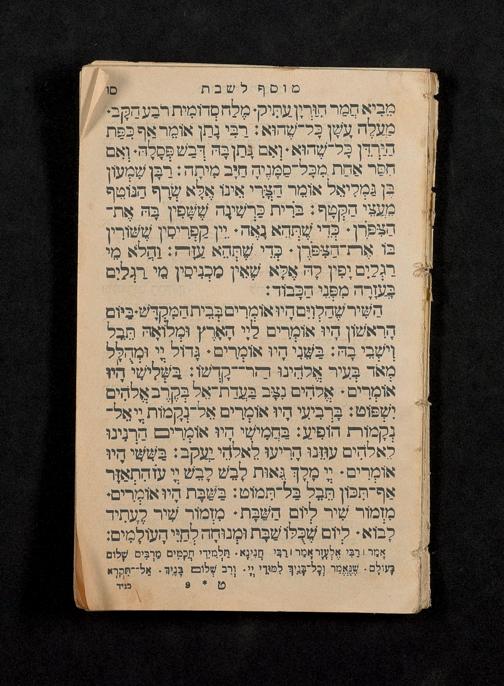 מוסף לשבת סו
מֵבִיא חֲמַר חִוַּרְיָן עַתִּיק· מֶלַח סְדוֹמִית רֹבַע הַקָּב·
מַעֲלֶה עָשָׁן כָּל־שֶׁהוּא: רַבִּי נָתָן אוֹמֵר אַף כִּפַּת
הַיַּרְדֵּן כָּל־שֶׁהוּא· וְאִם נָתַן בָּהּ דְּבַשׁ פְּסָלָהּ· וְאִם
חִסַּר אַחַת מִכָּל־סַמָּנֶיהָ חַיָּב מִיתָה: רַבָּן שִׁמְעוֹן
בֶּן גַּמְלִיאֵל אוֹמֵר הַצֳּרִי אֵינוֹ אֶלָּא שְׂרָף הַנּוֹטֵף
מֵעֲצֵי הַקְּטָף: בֹּרִית כַּרְשִׁינָה שֶׁשָּׁפִין בָּהּ אֶת־
הַצִּפֹּרֶן· כְּדֵי שֶׁתְּהֵא נָאָה· יֵין קַפְרִיסִין שֶׁשּׁוֹרִין
בּוֹ אֶת־הַצִּפֹּרֶן· כְּדֵי שֶׁתְּהֵא עַזָּה: וַהֲלֹא מֵי
רַגְלַיִם יָפִין לָהּ אֶלָּא שֶׁאֵין מַכְנִיסִין מֵי רַגְלַיִם
בָּעֲזָרָה מִפְּנֵי הַכָּבוֹד:
הַשִּׁיר שֶׁהַלְוִיִּם הָיוּ אוֹמְרִים בְּבֵית הַמִּקְדָּשׁ· בַּיּוֹם
הָרִאשׁוֹן הָיוּ אוֹמְרִים לַיְיָ הָאָרֶץ וּמְלוֹאָהּ תֵּבֵל
וְיֹשְׁבֵי בָהּ: בַּשֵּׁנִי הָיוּ אוֹמְרִים· גָּדוֹל יְיָ וּמְהֻלָּל
מְאֹד בְּעִיר אֱלֹהֵינוּ הַר־קָדְשׁוֹ: בַּשְּׁלִישִׁי הָיוּ
אוֹמְרִים· אֱלֹהִים נִצָּב בַּעֲדַת־אֵל בְּקֶרֶב אֱלֹהִים
יִשְׁפּוֹט: בָּרְבִיעִי הָיוּ אוֹמְרִים אֵל־נְקָמוֹת יְיָ אֵל־
נְקָמוֹת הוֹפִיעַ: בַּחֲמִישִׁי הָיוּ אוֹמְרִים הַרְנִינוּ
לֵאלֹהִים עוּזֵּנוּ הָרִיעוּ לֵאלֹהֵי יַעֲקֹב: בַּשִּׁשִּׁי הָיוּ
אוֹמְרִים· יְיָ מָלָךְ גֵּאוּת לָבֵשׁ לָבֵשׁ יְיָ עֹז הִתְאַזָּר
אַף־תִּכּוֹן תֵּבֵל בַּל־תִּמּוֹט: בַּשַּׁבָּת הָיוּ אוֹמְרִים·
מִזְמוֹר שִׁיר לְיוֹם הַשַּׁבָּת· מִזְמוֹר שִׁיר לֶעָתִיד
לָבוֹא· לְיוֹם שֶׁכֻּלּוֹ שַׁבָּת וּמְנוּחָה לְחַיֵּי הָעוֹלָמִים:
אָמַר רַבִּי אֶלְעָזָר אָמַר רַבִּי חֲנִינָא· תַּלְמִידֵי חֲכָמִים מַרְבִּים שָׁלוֹם
בָּעוֹלָם· שֶׁנֶּאֱמַר וְכָל־בָּנַיִךְ לִמּוּדֵי יְיָ· וְרַב שְׁלוֹם בָּנָיִךְ· אַל־תִּקְרָא
ט * 9 בניך